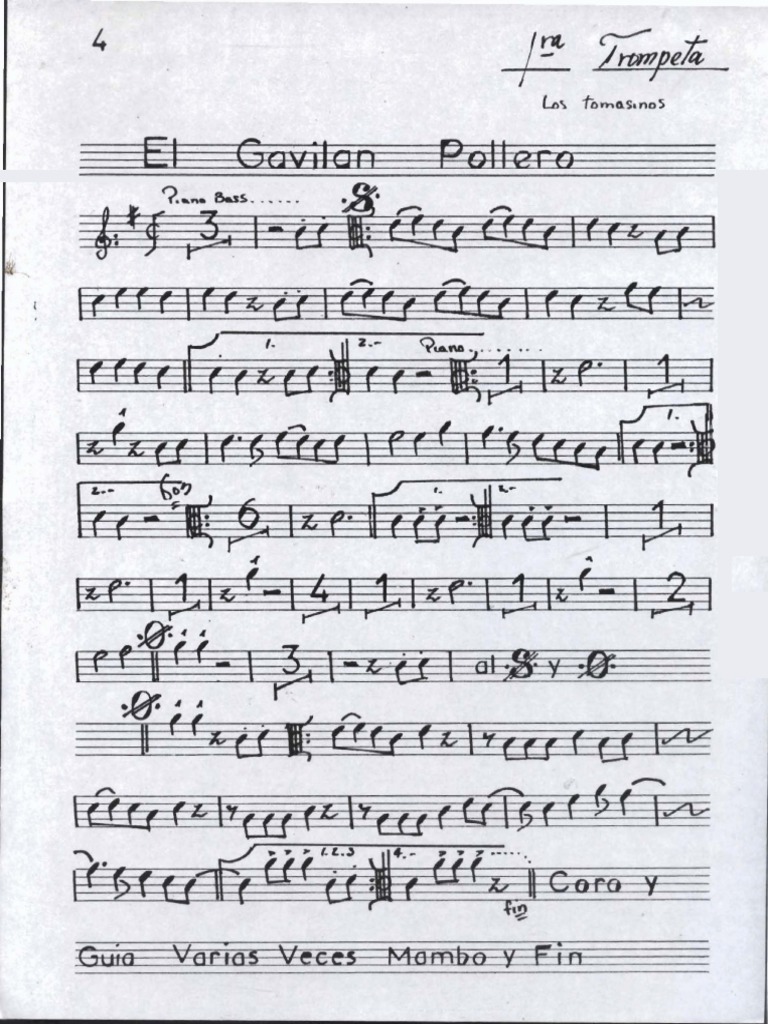 4
1ra Trompeta
Los tomasinos
El Gavilan Pollero
Piano Bass......
3
1. 2.- Piano.,.......
1 1
1.
2.-
6 1. 2.- 1
1 4 1 1 2
3 al y
1.2.3 4.- Coro y
fin
Guia Varias Veces Mambo y Fin